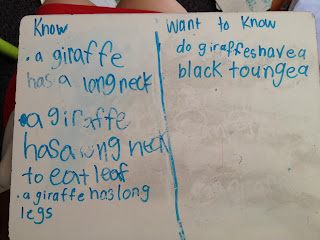 Know
• a giraffe
has a long neck
• a giraffe
has a long neck
to eat leaf
• a giraffe has long
legs
Want to Know
do giraffes have a
black toungea